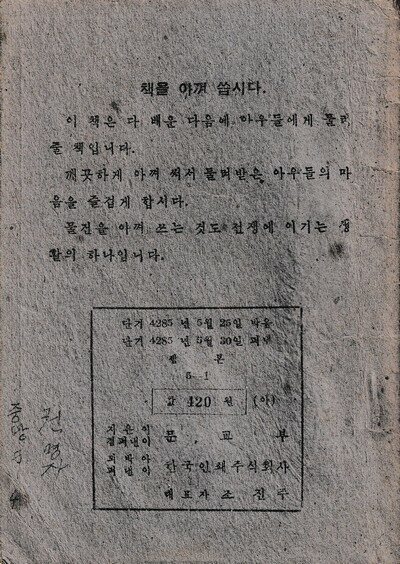 책을 아껴 씁시다.
이 책은 다 배운 다음에 아우들에게 물려
줄 책입니다.
깨끗하게 아껴 써서 물려받은 아우들의 마
음을 즐겁게 합시다.
물건을 아껴 쓰는 것도 전쟁에 이기는 생
활의 하나입니다.
단기 4285 년 5월 25일 박음
단기 4285 년 5월 30일 펴냄
본
5-1
값 420 원 (아)
지은이
겸펴낸이 문 교 부
펴낸이 한국인쇄주식회사
대표자 조 진 주